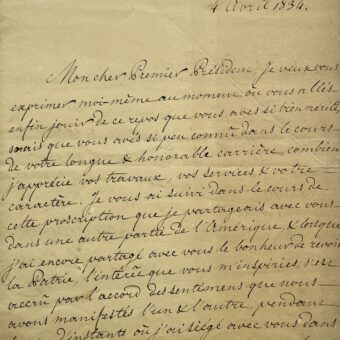 4 Avril 1834.
Mon cher Premier Président, Je veux vous
exprimer moi-même au moment où vous allés
enfin jouir de ce repos que vous avés si bien mérité
mais que vous avés si peu connu dans le cours
de votre longue & honorable carrière, combien
j'apprécie vos travaux, vos services & votre
caractère. Je vous ai suivi dans le cours de
cette proscription que je partageais avec vous
dans une autre partie de l'Amérique, & lorsque
j'ai encore partagé avec vous le bonheur de revoir
la Patrie, l'intérêt que vous m'inspiriés, s'est
accrû par l'accord des sentimens que nous
avons manifestés l'un & l'autre, pendant
d'instants où j'ai siégé avec vous dans